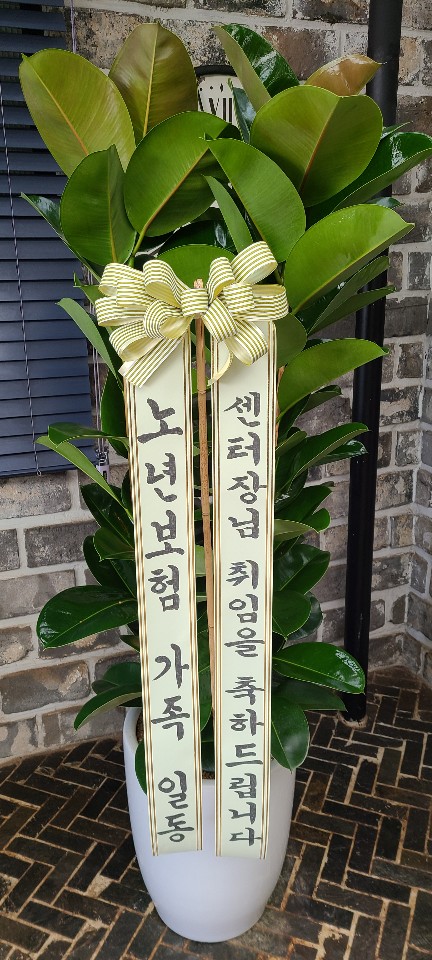 노년보험 가족 일동
센터장님 취임을 축하드립니다